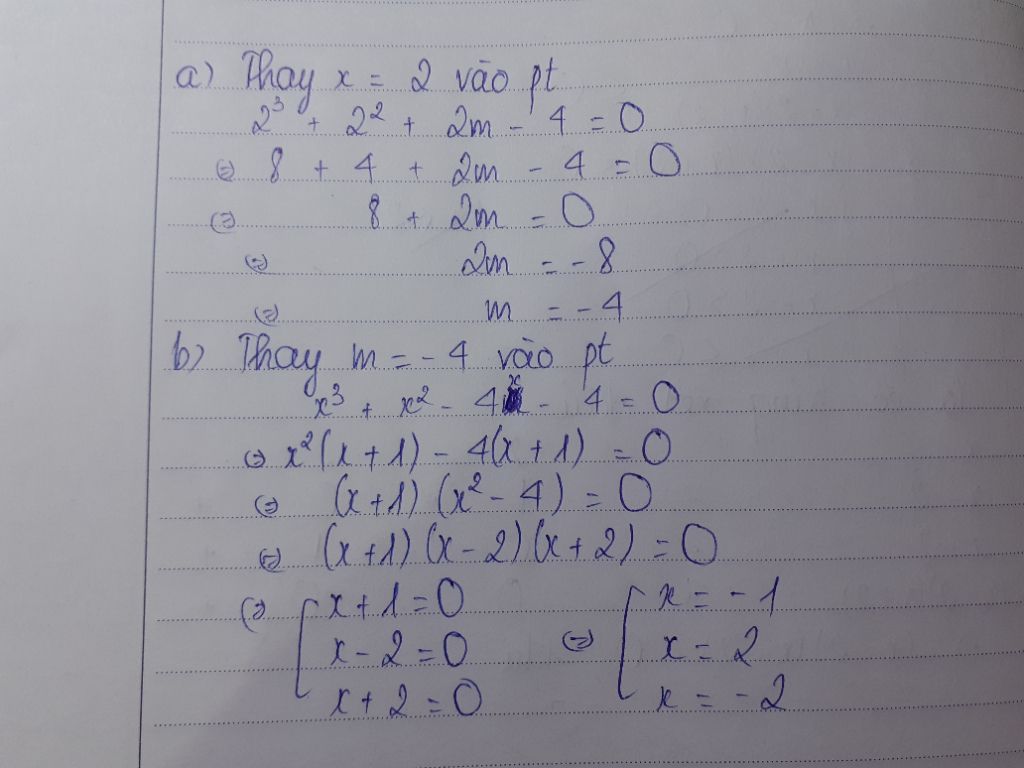 a) Thay x = 2 vào pt
2³ + 2² + 2m - 4 = 0
⇔ 8 + 4 + 2m - 4 = 0
⇔ 8 + 2m = 0
⇔ 2m = -8
⇔ m = -4
b) Thay m = -4 vào pt
x³ + x² - 4x - 4 = 0
⇔ x²(x + 1) - 4(x + 1) = 0
⇔ (x + 1) (x² - 4) = 0
⇔ (x + 1) (x - 2) (x + 2) = 0
⇔ [ x + 1 = 0 ⇔ [ x = -1
x - 2 = 0 x = 2
x + 2 = 0 x = -2